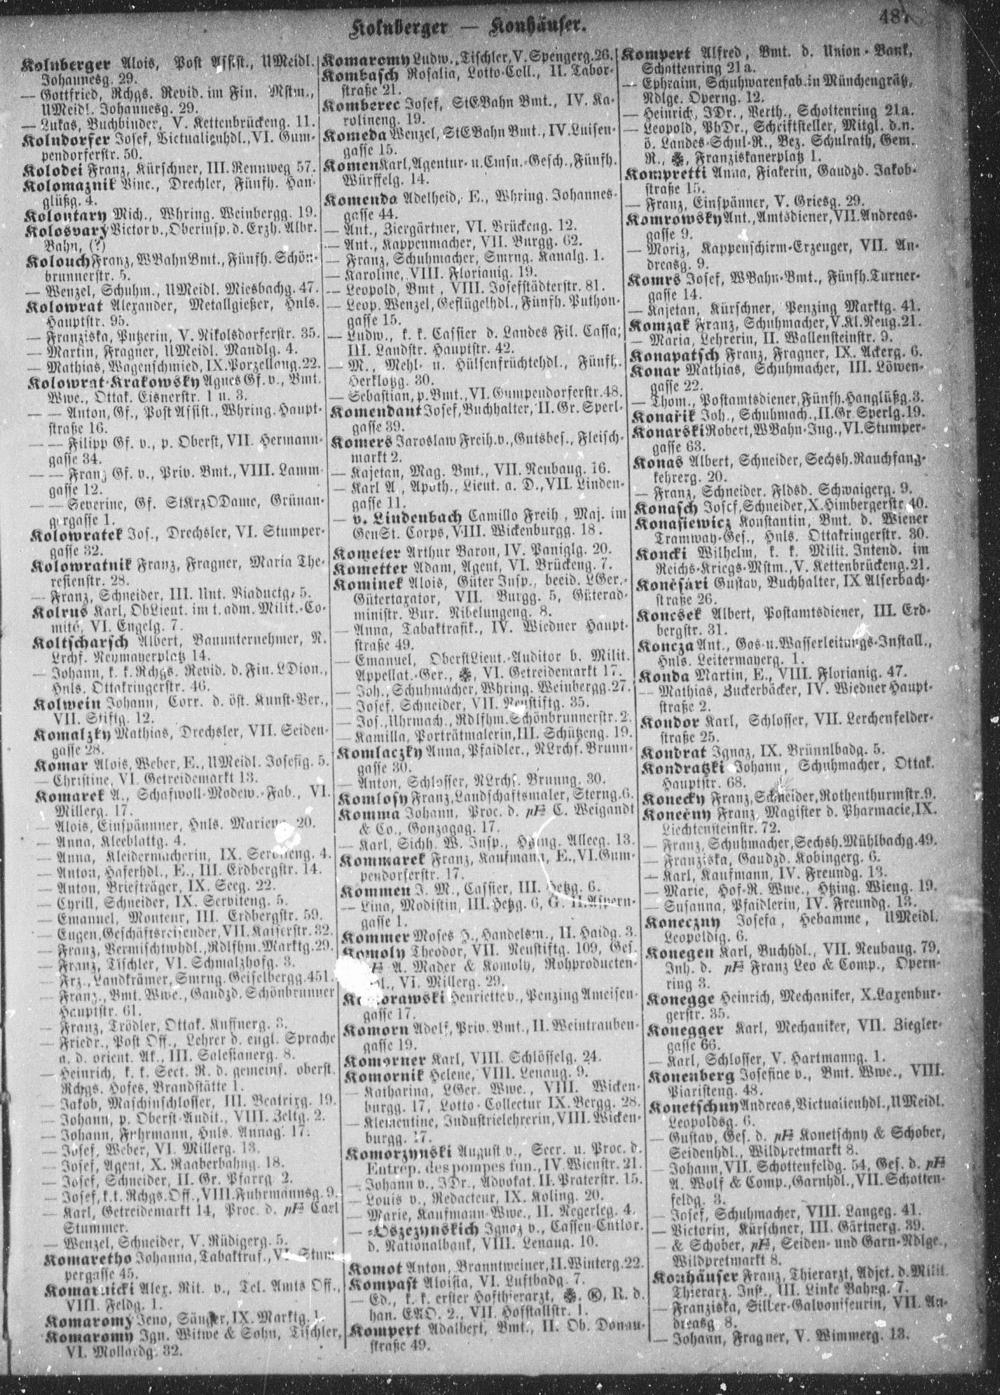 Kolnberger — Konhäuser.
Kolnberger Alois, Post Assist., UMeidl.
Johannesg. 29.
— Gottfried, Rchgs. Revid. im Fin. Mstm.,
UMeidl. Johannesg. 29.
— Lukas, Buchbinder, V. Kettenbrückeng. 11.
Kolndorfer Josef, Victualienhdl., VI. Gum-
pendorferstr. 50.
Kolodei Franz, Kürschner, III. Rennweg 57.
Kolomaznik Vinc., Drechsler, Fünfh. Han-
glüßg. 4.
Kolontary Mich., Whring. Weinbergg. 19.
Kolosvary Victor v., Oberinsp. d. Erzh. Albr.
Bahn, (?)
Kolouch Franz, WBahn Bmt., Fünfh. Schön-
brunnerstr. 5.
— Wenzel, Schuhm., UMeidl. Miesbachg. 47.
Kolowrat Alexander, Metallgießer, Hnls.
Hauptstr. 95.
— Franziska, Putzerin, V. Nikolsdorferstr. 35.
— Martin, Fragner, UMeidl. Mandlg. 4.
— Mathias, Wagenschmied, IX. Porzellang. 22.
Kolowrat-Krakowsky Agnes Gf. v., Bmt.
Wwe., Ottak. Eisnerstr. 1 u. 3.
— — Anton, Gf., Post Assist., Whring. Haupt-
straße 16.
— — Filipp Gf. v., p. Oberst, VII. Hermann-
gasse 34.
— — Franz Gf. v., Priv. Bmt., VIII. Lamm-
gasse 12.
— — Severine, Gf. StKrzODame, Grünan-
gergasse 1.
Kolowratek Jos., Drechsler, VI. Stumper-
gasse 32.
Kolowratnik Franz, Fragner, Maria The-
resienstr. 28.
— Franz, Schneider, III. Unt. Viaductg. 5.
Kolrus Karl, ObLieut. im t. adm. Milit.-Co-
mité, VI. Engelg. 7.
Koltscharsch Albert, Bauunternehmer, N.
Lrchf. Neumayerplatz 14.
— Johann, k. k. Rchgs. Revid. d. Fin. LDion.,
Hnls. Ottakringerstr. 46.
Kolwein Johann, Corr. d. öst. Kunst-Ver.,
VII. Stiftg. 12.
Komalzky Mathias, Drechsler, VII. Seiden-
gasse 28.
Komar Alois, Weber, E., UMeidl. Josefig. 5.
— Christine, VI. Getreidemarkt 13.
Komarek A., Schafwoll-Modew.-Fab., VI.
Millerg. 17.
— Alois, Einspännner, Hnls. 20.
— Anna, Kleeblattg. 4.
— Anna, Kleidermacherin, IX. 4.
— Anton, Haferhdl., E., III. Erdbergstr. 14.
— Anton, Briefträger, IX. Seeg. 22.
— Cyrill, Schneider, IX. Serviteng. 5.
— Emanuel, Monteur, III. Erdbergstr. 59.
— Eugen, Geschäftsreisender, VII. Kaiserstr. 32.
— Franz, Vermischtwhdl., Rdlfhm. Marktg. 29.
— Franz, Tischler, VI. Schmalzhofg. 3.
— Frz., Landkrämer, Smrng. Geiselbergg. 451.
— Franz, Bmt. Wwe., Gaudzd. Schönbrunner
Hauptstr. 61.
— Franz, Trödler, Ottak. Kuffnerg. 3.
— Friedr., Post Off., Lehrer d. engl. Sprache
a. d. orient. Ak., III. Salesianerg. 8.
— Heinrich, k. k. Sect. R. d. gemeins. oberst.
Rchgs. Hofes, Brandstätte 1.
— Jakob, Maschinschlosser, III. Beatrixg. 19.
— Johann, p. Oberst-Audit., VIII. Zeltg. 2.
— Johann, Fuhrmann, Hnls. Annag. 17.
— Josef, Weber, VI. Millerg. 13.
— Josef, Agent, X. Raaberbahng. 18.
— Josef, Schneider, II. Gr. Pfarrg. 2.
— Josef, k. k. Rchgs. Off., VIII. Fuhrmannsg. 9.
— Karl, Getreidemarkt 14, Proc. d. pF Carl
Stummer.
— Wenzel, Schneider, V. Rüdigerg. 5.
Komaretho Johanna, Tabaktraf., VI. Stum
pergasse 45.
Komarnicki Alex. Rit. v., Tel. Amts Off.,
VIII. Feldg. 1.
Komaromy Jeno, Sänger, IX. Marktg. 1.
Komaromy Ign. Witwe & Sohn, Tischler,
VI. Mollardg. 32.
Komaromy Ludw., Tischler, V. Spengerg. 26.
Kombasch Rosalia, Lotto-Coll., II. Tabor-
straße 21.
Komberec Josef, StEBahn Bmt., IV. Ka-
rolineng. 19.
Komeda Wenzel, StEBahn Bmt., IV. Luisen-
gasse 15.
Komen Karl, Agentur- u. Cmsn.-Gesch., Fünfh.
Würffelg. 14.
Komenda Adelheid, E., Whring. Johannes-
gasse 44.
— Ant., Ziergärtner, VI. Brückeng. 12.
— Ant., Kappenmacher, VII. Burgg. 62.
— Franz, Schuhmacher, Smrng. Kanalg. 1.
— Karoline, VIII. Florianig. 19.
— Leopold, Bmt., VIII. Josefstädterstr. 81.
— Leop. Wenzel, Geflügelhdl., Fünfh. Puthon-
gasse 15.
— Ludw., k. k. Cassier d. Landes Fil. Cassa,
III. Landstr. Hauptstr. 42.
— M., Mehl- u. Hülsenfrüchtehdl., Fünfh.
Herklotzg. 30.
— Sebastian, p. Bmt., VI. Gumpendorferstr. 48.
Komendant Josef, Buchhalter, II. Gr. Sperl-
gasse 39.
Komers Jaroslaw Freih. v., Gutsbes., Fleisch-
markt 2.
— Kajetan, Mag. Bmt., VII. Neubaug. 16.
— Karl A., Apoth., Lieut. a. D., VII. Linden-
gasse 11.
— v. Lindenbach Camillo Freih., Maj. im
GenSt. Corps, VIII. Wickenburgg. 18.
Kometer Arthur Baron, IV. Paniglg. 20.
Kometter Adam, Agent, VI. Brückeng. 7.
Kominek Alois, Güter Insp., beeid. LGer.-
Gütertaxator, VII. Burgg. 5, Güterad-
ministr. Bur. Nibelungeng. 8.
— Anna, Tabaktrafik., IV. Wiedner Haupt-
straße 49.
— Emanuel, OberstLieut.-Auditor b. Milit.
Appellat.-Ger., VI. Getreidemarkt 17.
— Joh., Schuhmacher, Whring. Weinbergg. 27.
— Josef, Schneider, VII. Neustiftg. 35.
— Jos., Uhrmach., Rdlfhm. Schönbrunnerstr. 2.
— Kamilla, Porträtmalerin, III. Schützeng. 19.
Komlaczky Anna, Pfaidler., NLrchf. Brunn-
gasse 30.
— Anton, Schlosser, NLrchf. Brunng. 30.
Komlosy Franz, Landschaftsmaler, Sterng. 6.
Komma Johann, Proc. d. pF C. Weigandt
& Co., Gonzagag. 17.
— Karl, Sichh. W. Insp., Hging. Alleeg. 13.
Kommarek Franz, Kaufmann, E., VI. Gum-
pendorferstr. 17.
Kommen J. M., Cassier, III. Hetzg. 6.
— Lina, Modistin, III. Hetzg. 6, G. II. Aspern-
gasse 1.
Kommer Moses J., Handelsm., II. Haidg. 3.
Komoly Theodor, VII. Neustiftg. 109, Ges.
A. Mader & Komoly, Rohproducten-
VI. Millerg. 29.
Henriette v., Penzing Ameisen-
gasse 17.
Komorn Adolf, Priv. Bmt., II. Weintrauben-
gasse 19.
Komorner Karl, VIII. Schlösselg. 24.
Komornik Helene, VIII. Lenaug. 9.
— Katharina, LGer. Wwe., VIII. Wicken-
burgg. 17, Lotto-Collectur IX. Bergg. 28.
— Klementine, Industrielehrerin, VIII. Wicken-
burgg. 17.
Komorzynski August v., Secr. u. Proc. d.
Entrep. des pompes fun., IV. Wienstr. 21.
— Johann v., JDr., Advokat. II. Praterstr. 15.
— Louis v., Redacteur, IX. Koling. 20.
— Marie, Kaufmann-Wwe., II. Negerleg. 4.
— Oszezynskich Ignaz v., Cassen-Contor.
d. Nationalbank, VIII. Lenaug. 10.
Komot Anton, Branntweiner, II. Winterg. 22.
Kompast Aloisia, VI. Luftbadg. 7.
— Ed., k. k. erster Hofthierarzt, R. d.
han. EAO. 2., VII. Hofstallstr. 1.
Kompert Adalbert, Bmt., II. Ob. Donau-
straße 49.
Kompert Alfred, Bmt. d. Union-Bank,
Schottenring 21a.
— Ephraim, Schuhwarenfab. in Münchengrätz,
Ndlge. Operng. 12.
— Heinrich, JDr., Verth., Schottenring 21a.
— Leopold, PhDr., Schriftsteller, Mitgl. d. n.
ö. Landes-Schul-R., Bez. Schulrath, Gem.
R., Franziskanerplatz 1.
Kompretti Anna, Fiakerin, Gaudzd. Jakob-
straße 15.
— Franz, Einspänner, V. Griesg. 29.
Komrowsky Ant., Amtsdiener, VII. Andreas-
gasse 9.
— Moriz, Kappenschirm-Erzeuger, VII. An-
dreasg. 9.
Komrs Josef, WBahn-Bmt., Fünfh. Turner-
gasse 14.
— Kajetan, Kürschner, Penzing Marktg. 41.
Komzak Franz, Schuhmacher, V. Kl. Neug. 21.
— Maria, Lehrerin, II. Wallensteinstr. 9.
Konapatsch Franz, Fragner, IX. Ackerg. 6.
Konar Mathias, Schuhmacher, III. Löwen-
gasse 22.
— Thom., Postamtsdiener, Fünfh. Hanglüßg. 3.
Konařik Joh., Schuhmach., II. Gr Sperlg. 19.
Konarski Robert, WBahn-Ing., VI. Stumper-
gasse 63.
Konas Albert, Schneider, Sechsh. Rauchfang-
kehrerg. 20.
— Franz, Schneider. Fldsd. Schwaigerg. 9.
Konasch Josef, Schneider, X. Himbergerstr. 40.
Konasiewicz Konstantin, Bmt. d. Wiener
Tramway-Ges., Hnls. Ottakringerstr. 30.
Koncki Wilhelm, k. k. Milit. Intend. im
Reichs-Kriegs-Mstm., V. Kettenbrückeng. 21.
Konesári Gustav, Buchhalter, IX. Alserbach-
straße 26.
Koncsek Albert, Postamtsdiener, III. Erd-
bergstr. 31.
Koncza Ant., Gas- u. Wasserleitungs-Install.,
Hnls. Leitermayerg. 1.
Konda Martin, E., VIII. Florianig. 47.
— Mathias, Zuckerbäcker, IV. Wiedner Haupt-
straße 2.
Kondor Karl, Schlosser, VII. Lerchenfelder-
straße 25.
Kondrat Ignaz, IX. Brünnlbadg. 5.
Kondratzki Johann, Schuhmacher, Ottak.
Hauptstr. 68.
Konecky Franz, Schneider, Rothenthurmstr. 9.
Konečny Franz, Magister d. Pharmacie, IX.
Liechtensteinstr. 72.
— Franz, Schuhmacher, Sechsh. Mühlbachg. 49.
— Franziska, Gaudzd. Kobingerg. 6.
— Karl, Kaufmann, IV. Freundg. 13.
— Marie, Hof-R. Wwe., Htzing. Wieng. 19.
— Susanna, Pfaidlerin, IV. Freundg. 13.
Koneczny Josefa, Hebamme, UMeidl.
Leopoldig. 6.
Konegen Karl, Buchhdl., VII. Neubaug. 79,
Inh. d. pF Franz Leo & Comp., Opern-
ring 3.
Konegge Heinrich, Mechaniker, X. Laxenbur-
gerstr. 35.
Konegger Karl, Mechaniker, VII. Ziegler-
gasse 66.
— Karl, Schlosser, V. Hartmanng. 1.
Konenberg Josefine v., Bmt. Wwe., VIII.
Piaristeng. 48.
Konetschny Andreas, Victualienhdl., UMeidl.
Leopoldsg. 6.
— Gustav, Ges. d. pF Konetschny & Schober,
Seidenhdl., Wildpretmarkt 8.
— Johann, VII. Schottenfeldg. 54, Ges. d. pF
A. Wolf & Comp., Garnhdl., VII. Schotten-
feldg. 3.
— Josef, Schuhmacher, VIII. Langeg. 41.
— Victorin, Kürschner, III. Gärtnerg. 39.
— & Schober, pF, Seiden- und Garn-Ndlge.,
Wildpretmarkt 8.
Konhäuser Franz, Thierarzt, Adjct. d. Milit.
Thierarz. Inst., III. Linke Bahng. 7.
— Franziska, Silber-Galvoniseurin, VII. An-
dreasg. 8.
— Johann, Fragner, V. Wimmerg. 13.